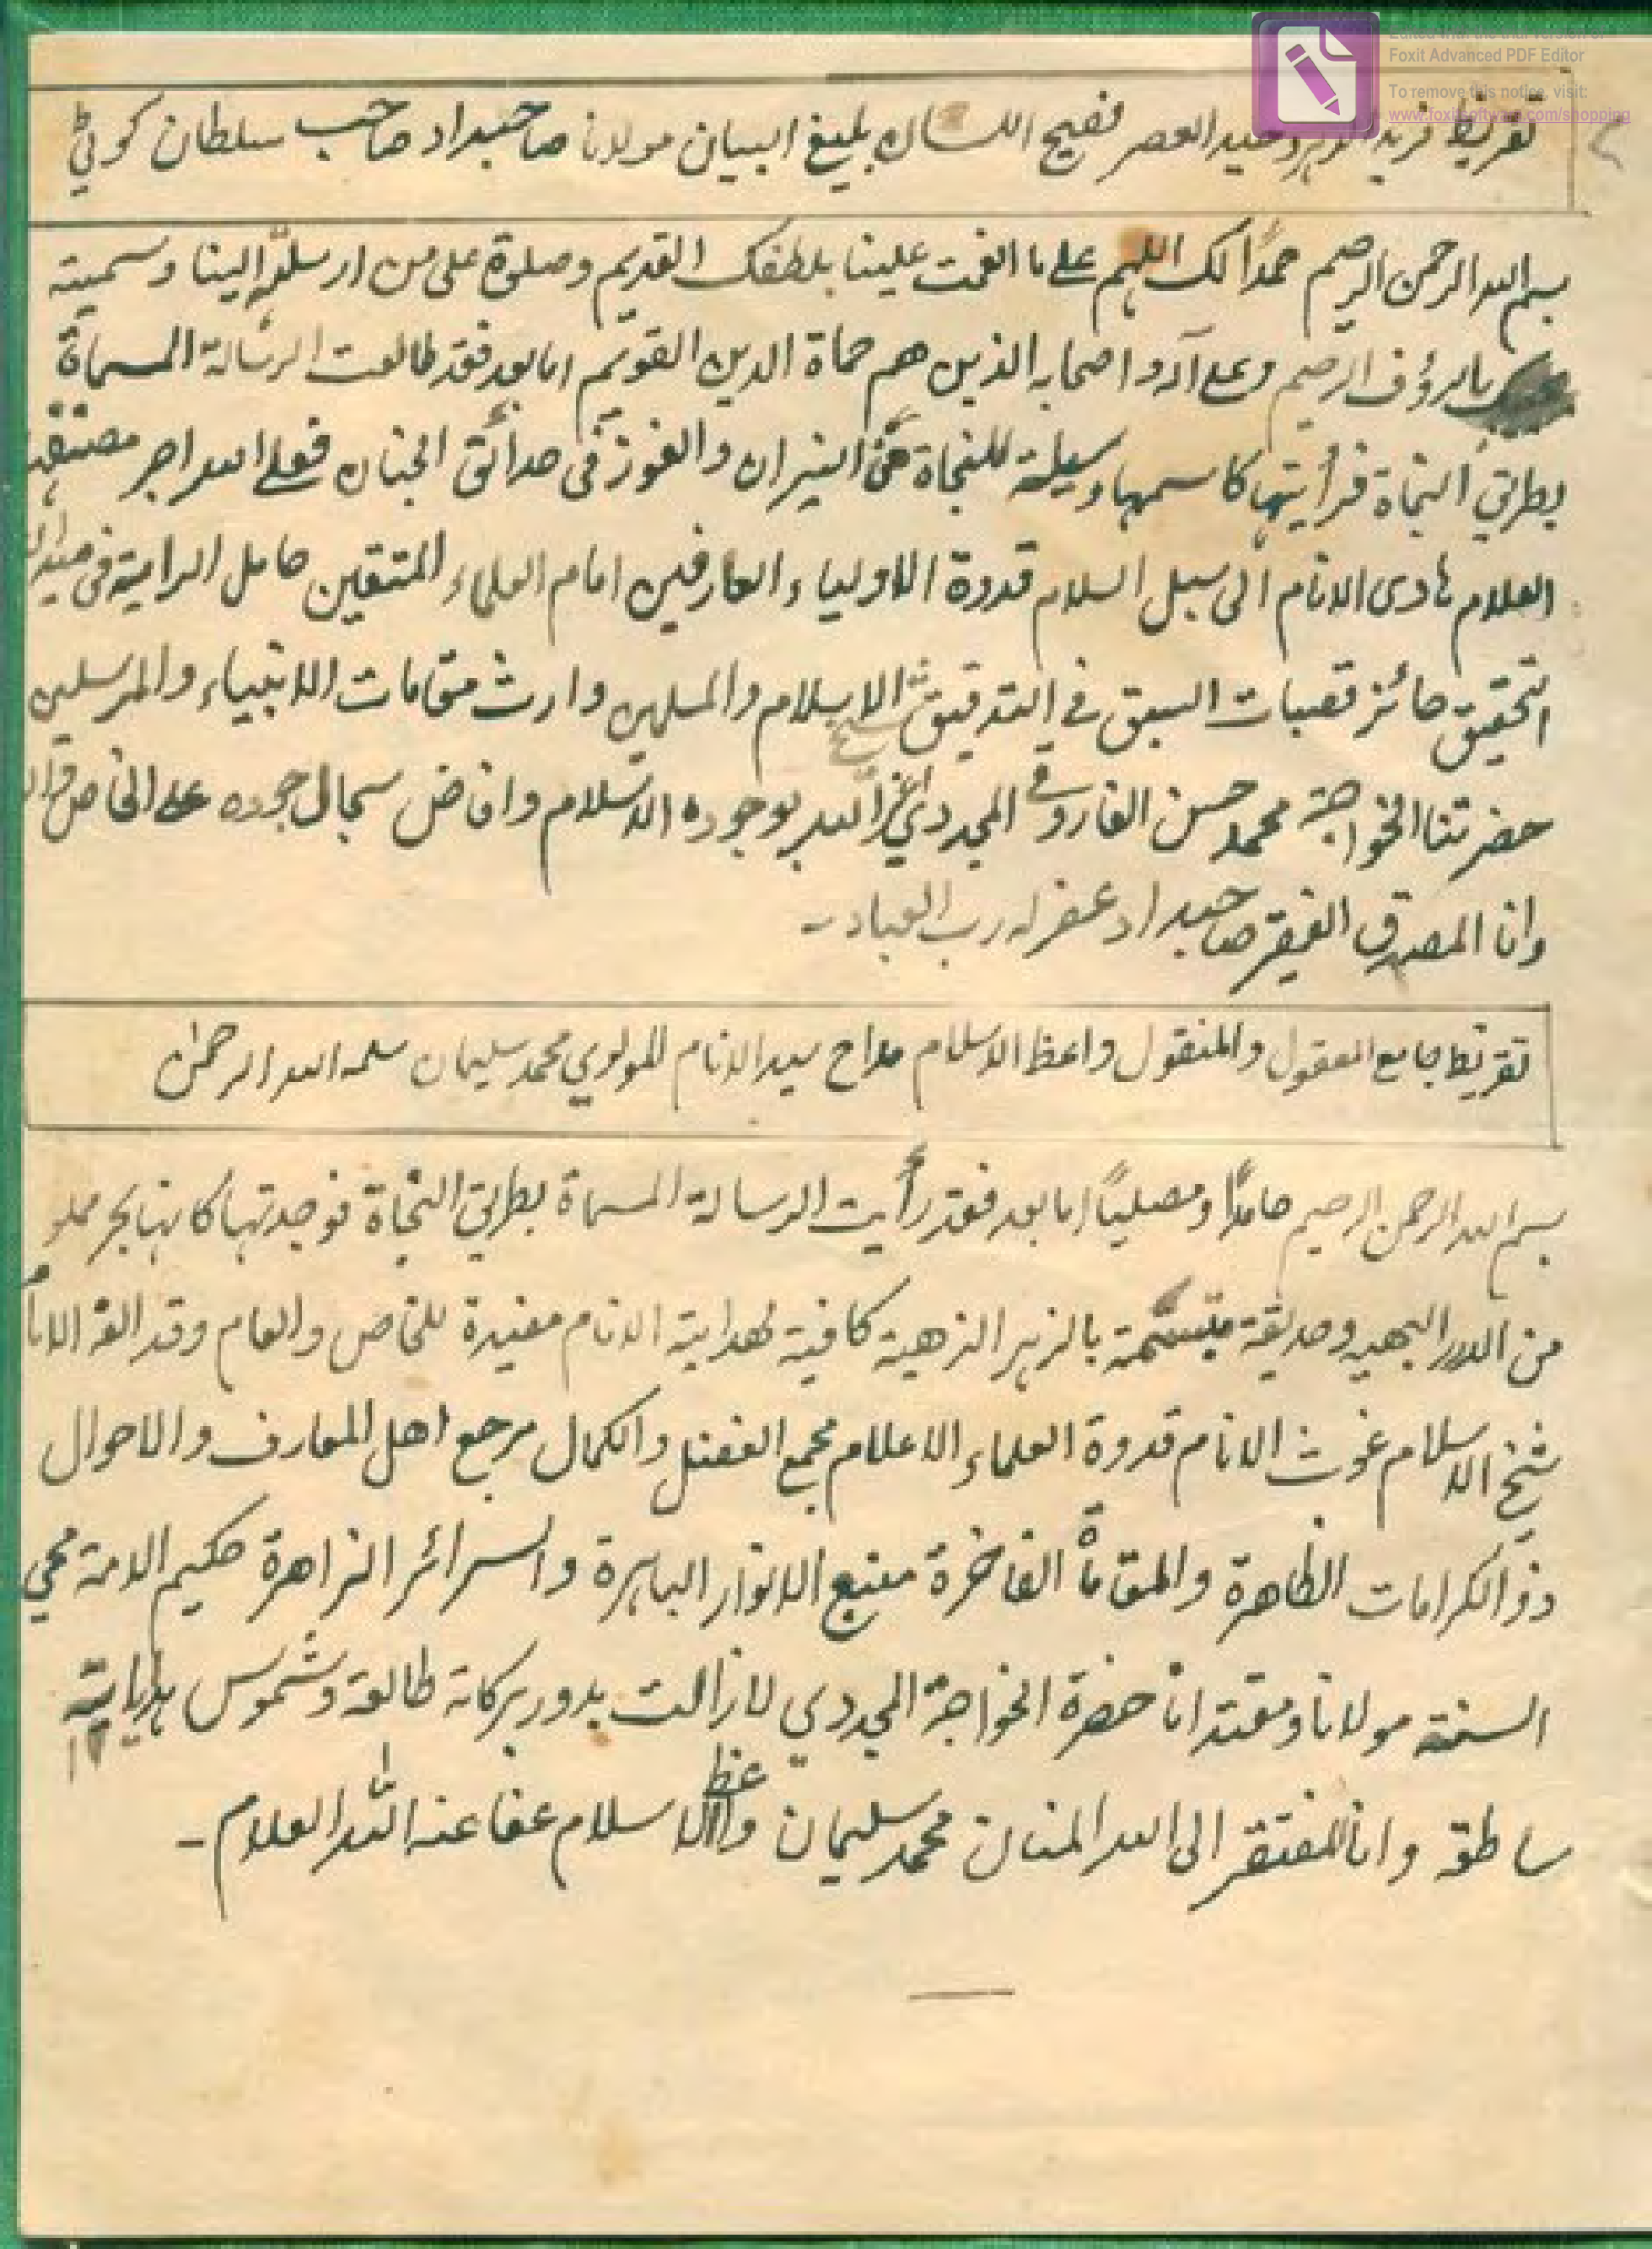 Edited with the trial version of
Foxit Advanced PDF Editor
To remove this notice, visit:
www.foxitsoftware.com/shopping
تقريظ فريد الدهر وحيد العصر فصيح اللسان بليغ البيان مولانا صاحبداد صاحب سلطان كوٹي
بسم الله الرحمن الرحيم حمدًا لك اللهم على ما انعمت علينا بلطفك القديم وصلوة على من ارسلته الينا وسميته
بالرؤف الرحيم وعلى آله واصحابه الذين هم حماة الدين القويم اما بعد فقد طالعت الرسالة المسماة
بطريق النجاة فرأيتها كاسمها وسيلة للنجاة عن النيران والفوز في حدائق الجنان فعلى الله اجر مصنفها
العلام هادى الانام الى سبل السلام قدوة الاولياء العارفين امام العلماء المتقين حامل الراية فى ميدان
التحقيق حائز قصبات السبق في التدقيق شيخ الاسلام والمسلمين وارث مقامات الانبياء والمرسلين
حضرتنا الخواجة محمد حسن الفاروقي المجددي اعز الله بوجوده الاسلام وافاض سجال جوده على الخاص
وانا المصدق الفقير صاحبداد غفر له رب العباد -
تقريظ جامع المعقول والمنقول واعظ الاسلام مداح سيد الانام المولوي محمد سليمان سلمه الله الرحمن
بسم الله الرحمن الرحيم حامدًا ومصليًا اما بعد فقد رأيت الرسالة المسماة بطريق النجاة فوجدتها كانها بحر مملو
من الدرر البهيه وحديقة متبسمة بالزهر الزهية كافية لهداية الانام مفيدة للخاص والعام وقد الفه
شيخ الاسلام غوث الانام قدوة العلماء الاعلام مجمع الفضل والكمال مرجع اهل المعارف والاحوال
ذو الكرامات الظاهرة والمقامات الفاخرة منبع الانوار الباهرة والسرائر الزاهرة حكيم الامة محي
السنة مولانا ومقتدانا حضرة الخواجة المجددي لا زالت بدور بركاته طالعة وشموس هداياته
ساطعة وانا المفتقر الى الله المنان محمد سليمان واعظ الاسلام عفا عنه الله العلام -